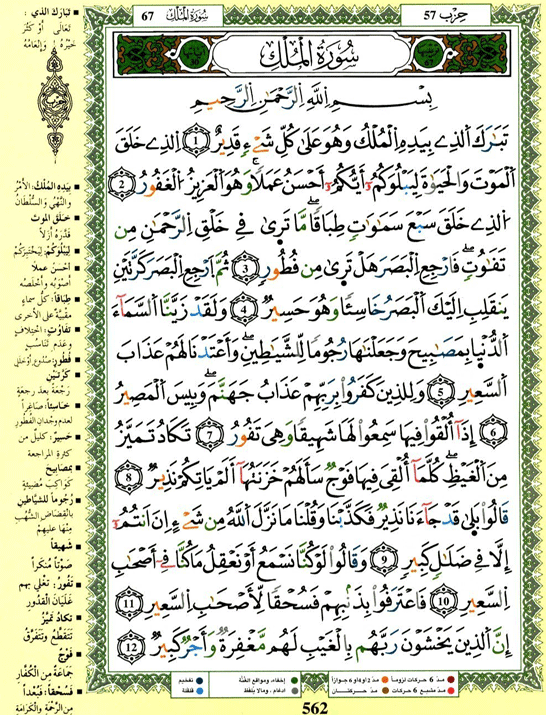 حِزْب 57
سُورَةُ المُلْك 67
سُورَةُ الْمُلْكِ
بِسْمِ اللَّهِ الرَّحْمَٰنِ الرَّحِيمِ
تَبَٰرَكَ الذِے بِيَدِهِ الْمُلْكُ وَهُوَ عَلَىٰ كُلِّ شَےْءٖ قَدِيرٌ 1 الذِے خَلَقَ
الْمَوْتَ وَالْحَيَوٰةَ لِيَبْلُوَكُمُۥٓ أَيُّكُمُۥٓ أَحْسَنُ عَمَلاٗ وَهُوَ الْعَزِيزُ الْغَفُورُ 2
الذِے خَلَقَ سَبْعَ سَمَٰوَٰتٖ طِبَاقاٗ مَّا تَر۪ىٰ فِے خَلْقِ الرَّحْمَٰنِ مِن
تَفَٰوُتٖ فَارْجِعِ الْبَصَرَ هَلْ تَر۪ىٰ مِن فُطُورٖ 3 ثُمَّ ارْجِعِ الْبَصَرَ كَرَّتَيْنِ
يَنقَلِبِ اِلَيْكَ الْبَصَرُ خَاسِئاٗ وَهُوَ حَسِيرٌ 4 وَلَقَدْ زَيَّنَّا السَّمَآءَ
الدُّنْيَا بِمَصَٰبِيحَ وَجَعَلْنَٰهَا رُجُوماٗ لِّلشَّيَٰطِينِ وَأَعْتَدْنَا لَهُمْ عَذَابَ
السَّعِيرِ 5 وَلِلذِينَ كَفَرُواْ بِرَبِّهِمْ عَذَابُ جَهَنَّمَ وَبِيسَ الْمَصِيرُ
6 إِذَآ أُلْقُواْ فِيهَا سَمِعُواْ لَهَا شَهِيقاٗ وَهِىَ تَفُورُ 7 تَكَادُ تَمَيَّزُ
مِنَ الْغَيْظِ كُلَّمَآ أُلْقِىَ فِيهَا فَوْجٞ سَأَلَهُمْ خَزَنَتُهَآ أَلَمْ يَاتِكُمْ نَذِيرٞ 8
قَالُواْ بَلَىٰ قَدْ جَآءَنَا نَذِيرٞ فَكَذَّبْنَا وَقُلْنَا مَا نَزَّلَ اللَّهُ مِن شَےْءٍ اِنَ اَنتُمُۥٓ
إِلَّا فِے ضَلَٰلٖ كَبِيرٖ 9 وَقَالُواْ لَوْ كُنَّا نَسْمَعُ أَوْ نَعْقِلُ مَا كُنَّا فِےٓ أَصْحَٰبِ
السَّعِيرِ 10 فَاعْتَرَفُواْ بِذَنۢبِهِمْ فَسُحْقاٗ لِّأَصْحَٰبِ السَّعِيرِ 11
إِنَّ الذِينَ يَخْشَوْنَ رَبَّهُم بِالْغَيْبِ لَهُم مَّغْفِرَةٞ وَأَجْرٞ كَبِيرٞ 12
تَبَارَكَ الذي :
تَعَالَى أوْ كَثُرَ
خَيْرُهُ وَإنْعَامُهُ
حزب
بِيَدِهِ المُلْكُ: الأمْرُ
والنَّهْيُ وَالسُّلْطَانُ
خَلَقَ الموتَ
قَدَّرَهُ أزَلاً
لِيَبْلُوَكُمْ: لِيَخْتَبِرَكُمْ
أحْسَنُ عَملاً
أصْوَبُهُ وأخْلَصُه
طِبَاقاً: كلُّ سماءٍ
مَقْبِيَّةٌ عَلى الأخرى
تَفَاوُتٍ: اخْتِلافٍ
وَعَدَمِ تَنَاسُبٍ
فُطُورٍ: صُدُوعٍ أوْ خَلَلٍ
كَرَّتَيْنِ
رَجْعَةً بعدَ رجعةٍ
خاسئاً: صَاغِراً
لعدمِ وُجْدانِ الفُطُورِ
حَسيرٌ: كَلِيلٌ من
كثرةِ المراجعةِ
بِمصَابِيحَ
كَوَاكِبَ مُضيئةٍ
رُجُوماً للشّيَاطينِ
بانْقِضَاضِ الشُّهُبِ
مِنْها عليهمْ
شَهيقاً
صَوْتاً مُنكَراً
تَفُورُ: تَغْلي بهم
غَلَيَانَ القُدُورِ
تَكَادُ تَمَيَّزُ
تَتَقَطَّعُ وتَتَفَرَّقُ
فَوْجٌ
جَمَاعَةٌ مِنَ الْكُفَّارِ
فَسُحْقاً: فَبُعْداً
مِنَ الرَّحْمَةِ والْكَرَامَةِ
مدّ 6 حركات لزوماً مدّ 2 أو 4 أو 6 جوازاً
إخفاء، ومواقع الغُنَّة
تفخيم
مدّ مشبع 6 حركات مدّ حركتان
إدغام، وما لا يُلفَظ
قلقلة
562